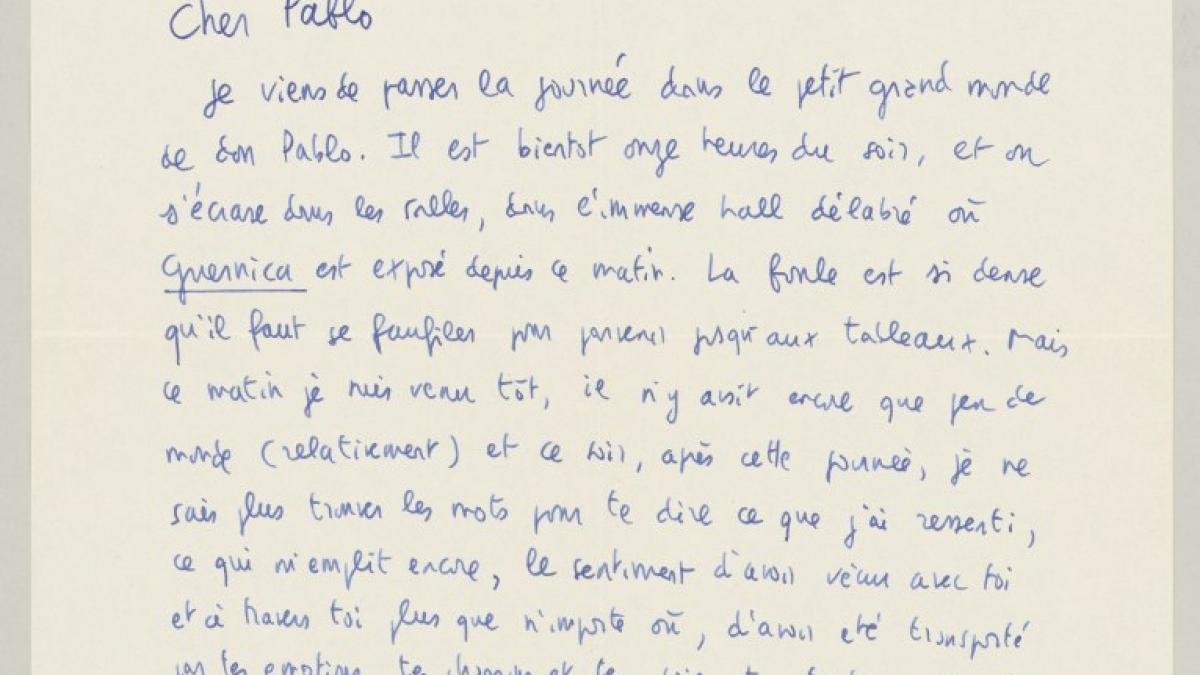 Cher Pablo
Je viens de passer la journée dans le petit grand monde
de don Pablo. Il est bientot onze heures du soir, et on
s'écrase dans les salles, dans l'immense hall délabré où
Guernica est exposé depuis ce matin. La foule est si dense
qu'il faut se faufiler pour parvenir jusqu'aux tableaux. Mais
ce matin je suis venu tôt, il n'y avait encore que peu de
monde (relativement) et ce soir, après cette journée, je ne
sais plus trouver les mots pour te dire ce que j'ai ressenti,
ce qui m'emplit encore, le sentiment d'avoir vécu avec toi
et à travers toi plus que n'importe où, d'avoir été transporté
par tes émotions, te